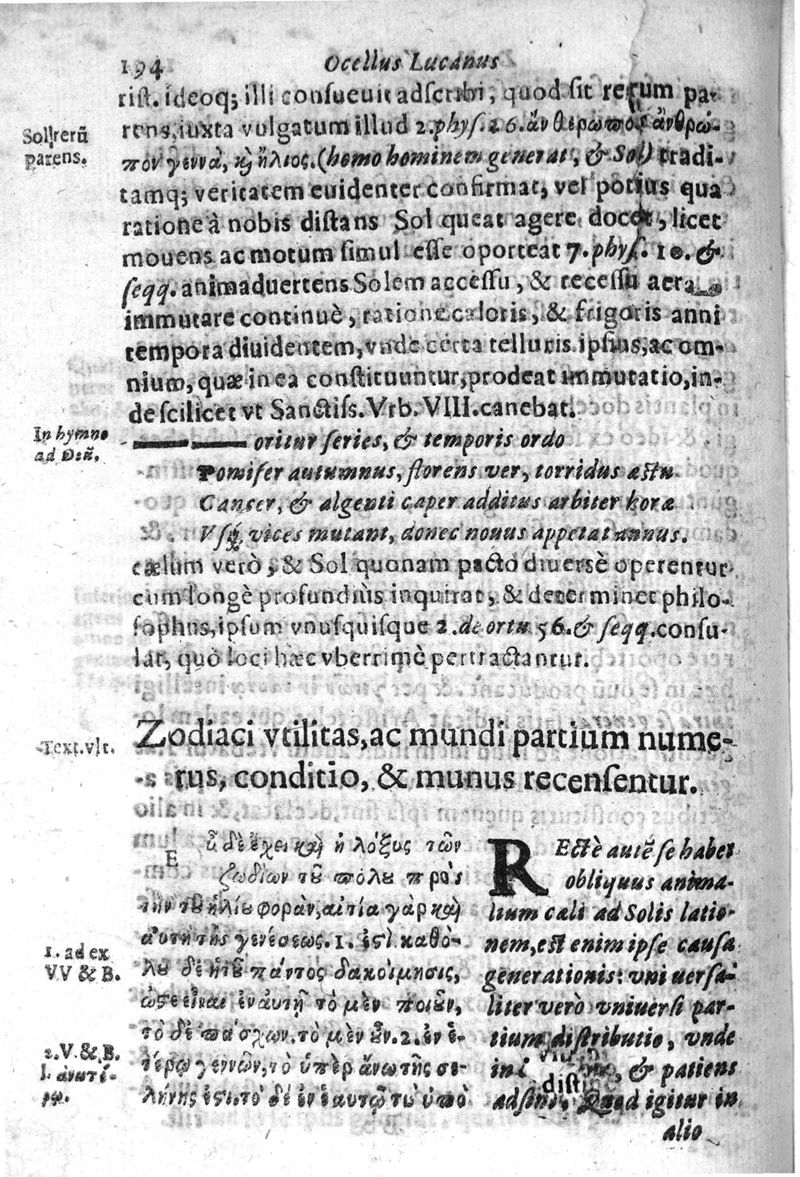 194 Ocellus Lucanus
rist. ideoq; illi consueuit adscribi, quod sit rerum pa-
Sol rerū
parens.
rens, iuxta vulgatum illud 2. phys. 26. ἄνθερωπος ἄνθρω-
πον γεννᾷ, καὶ ἥλιος. (homo hominem generat, & Sol) tradi-
tamq; veritatem euidenter confirmat, vel potius qua
ratione à nobis distans Sol queat agere docet, licet
mouens ac motum simul esse oporteat 7. phys. 10. &
seqq. animaduertens Solem accessu, & recessu aera
immutare continuè, ratione caloris, & frigoris anni
tempora diuidentem, vnde certa telluris ipsius, ac om-
nium, quæ in ea constituuntur, prodeat immutatio, in-
de scilicet vt Sanctiss. Vrb. VIII. canebat.
In hymno
ad Deū.
oritur series, & temporis ordo
Pomifer autumnus, florens ver, torridus æstu
Cancer, & algenti caper additus arbiter horæ
Vsq; vices mutant, donec nouus appetat annus.
cælum verò, & Sol quonam pacto diuersè operentur
cum longè profundiùs inquirat, & determinet philo-
sophus, ipsum vnusquisque 2. de ortu 56. & seqq. consu-
lat, quò loci hæc vberrimè pertractantur.
Text. vlt.
Zodiaci vtilitas, ac mundi partium nume-
rus, conditio, & munus recensentur.
Εὖ δὲ ἔχει καὶ ἡ λόξυς τῶν
ζωδίων τοῦ πόλου πρὸς
τὴν τοῦ ἡλίου φορὰν, αἰτία γὰρ καὶ
αὕτη τῆς γενέσεως. 1. ἐστὶ καθό-
1. ad ex
VV & B.
λου δὲ ἡ τοῦ παντὸς δακοίμησις,
ὥστε εἶναι ἐν αὐτῇ τὸ μὲν ποιοῦν,
τὸ δὲ πάσχων. τὸ μὲν οὖν. 2. ἐν ἑ-
2. V. & B.
l. ἀνωτέ-
ρω.
τέρῳ γεννῶν, τὸ ὑπὲρ ἄνω τῆς σε-
λήνης ἐστι. τὸ δὲ ἐν ἑαυτῷ τὸ ὑπὸ
REctè autē se habet
obliquus anima-
lium cæli ad Solis latio-
nem, est enim ipse causa
generationis: vni uersa-
liter verò vniuersi par-
tium distributio, vnde
in & patiens
adsint, Quod igitur in
alio